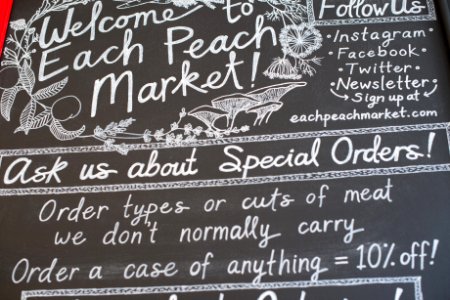 Welcome to
Each Peach
Market!
Follow Us
• Instagram •
• Facebook •
• Twitter •
Newsletter
Sign up at
eachpeachmarket.com
Ask us about Special Orders!
Order types or cuts of meat
we don't normally carry
Order a case of anything = 10% off!